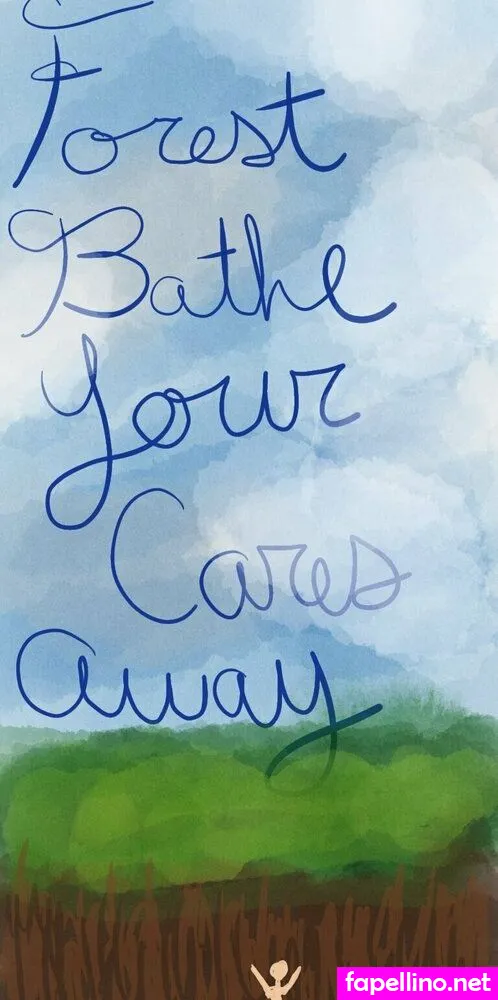 Forest
Bathe
Your
Cares
away
fapellino.net